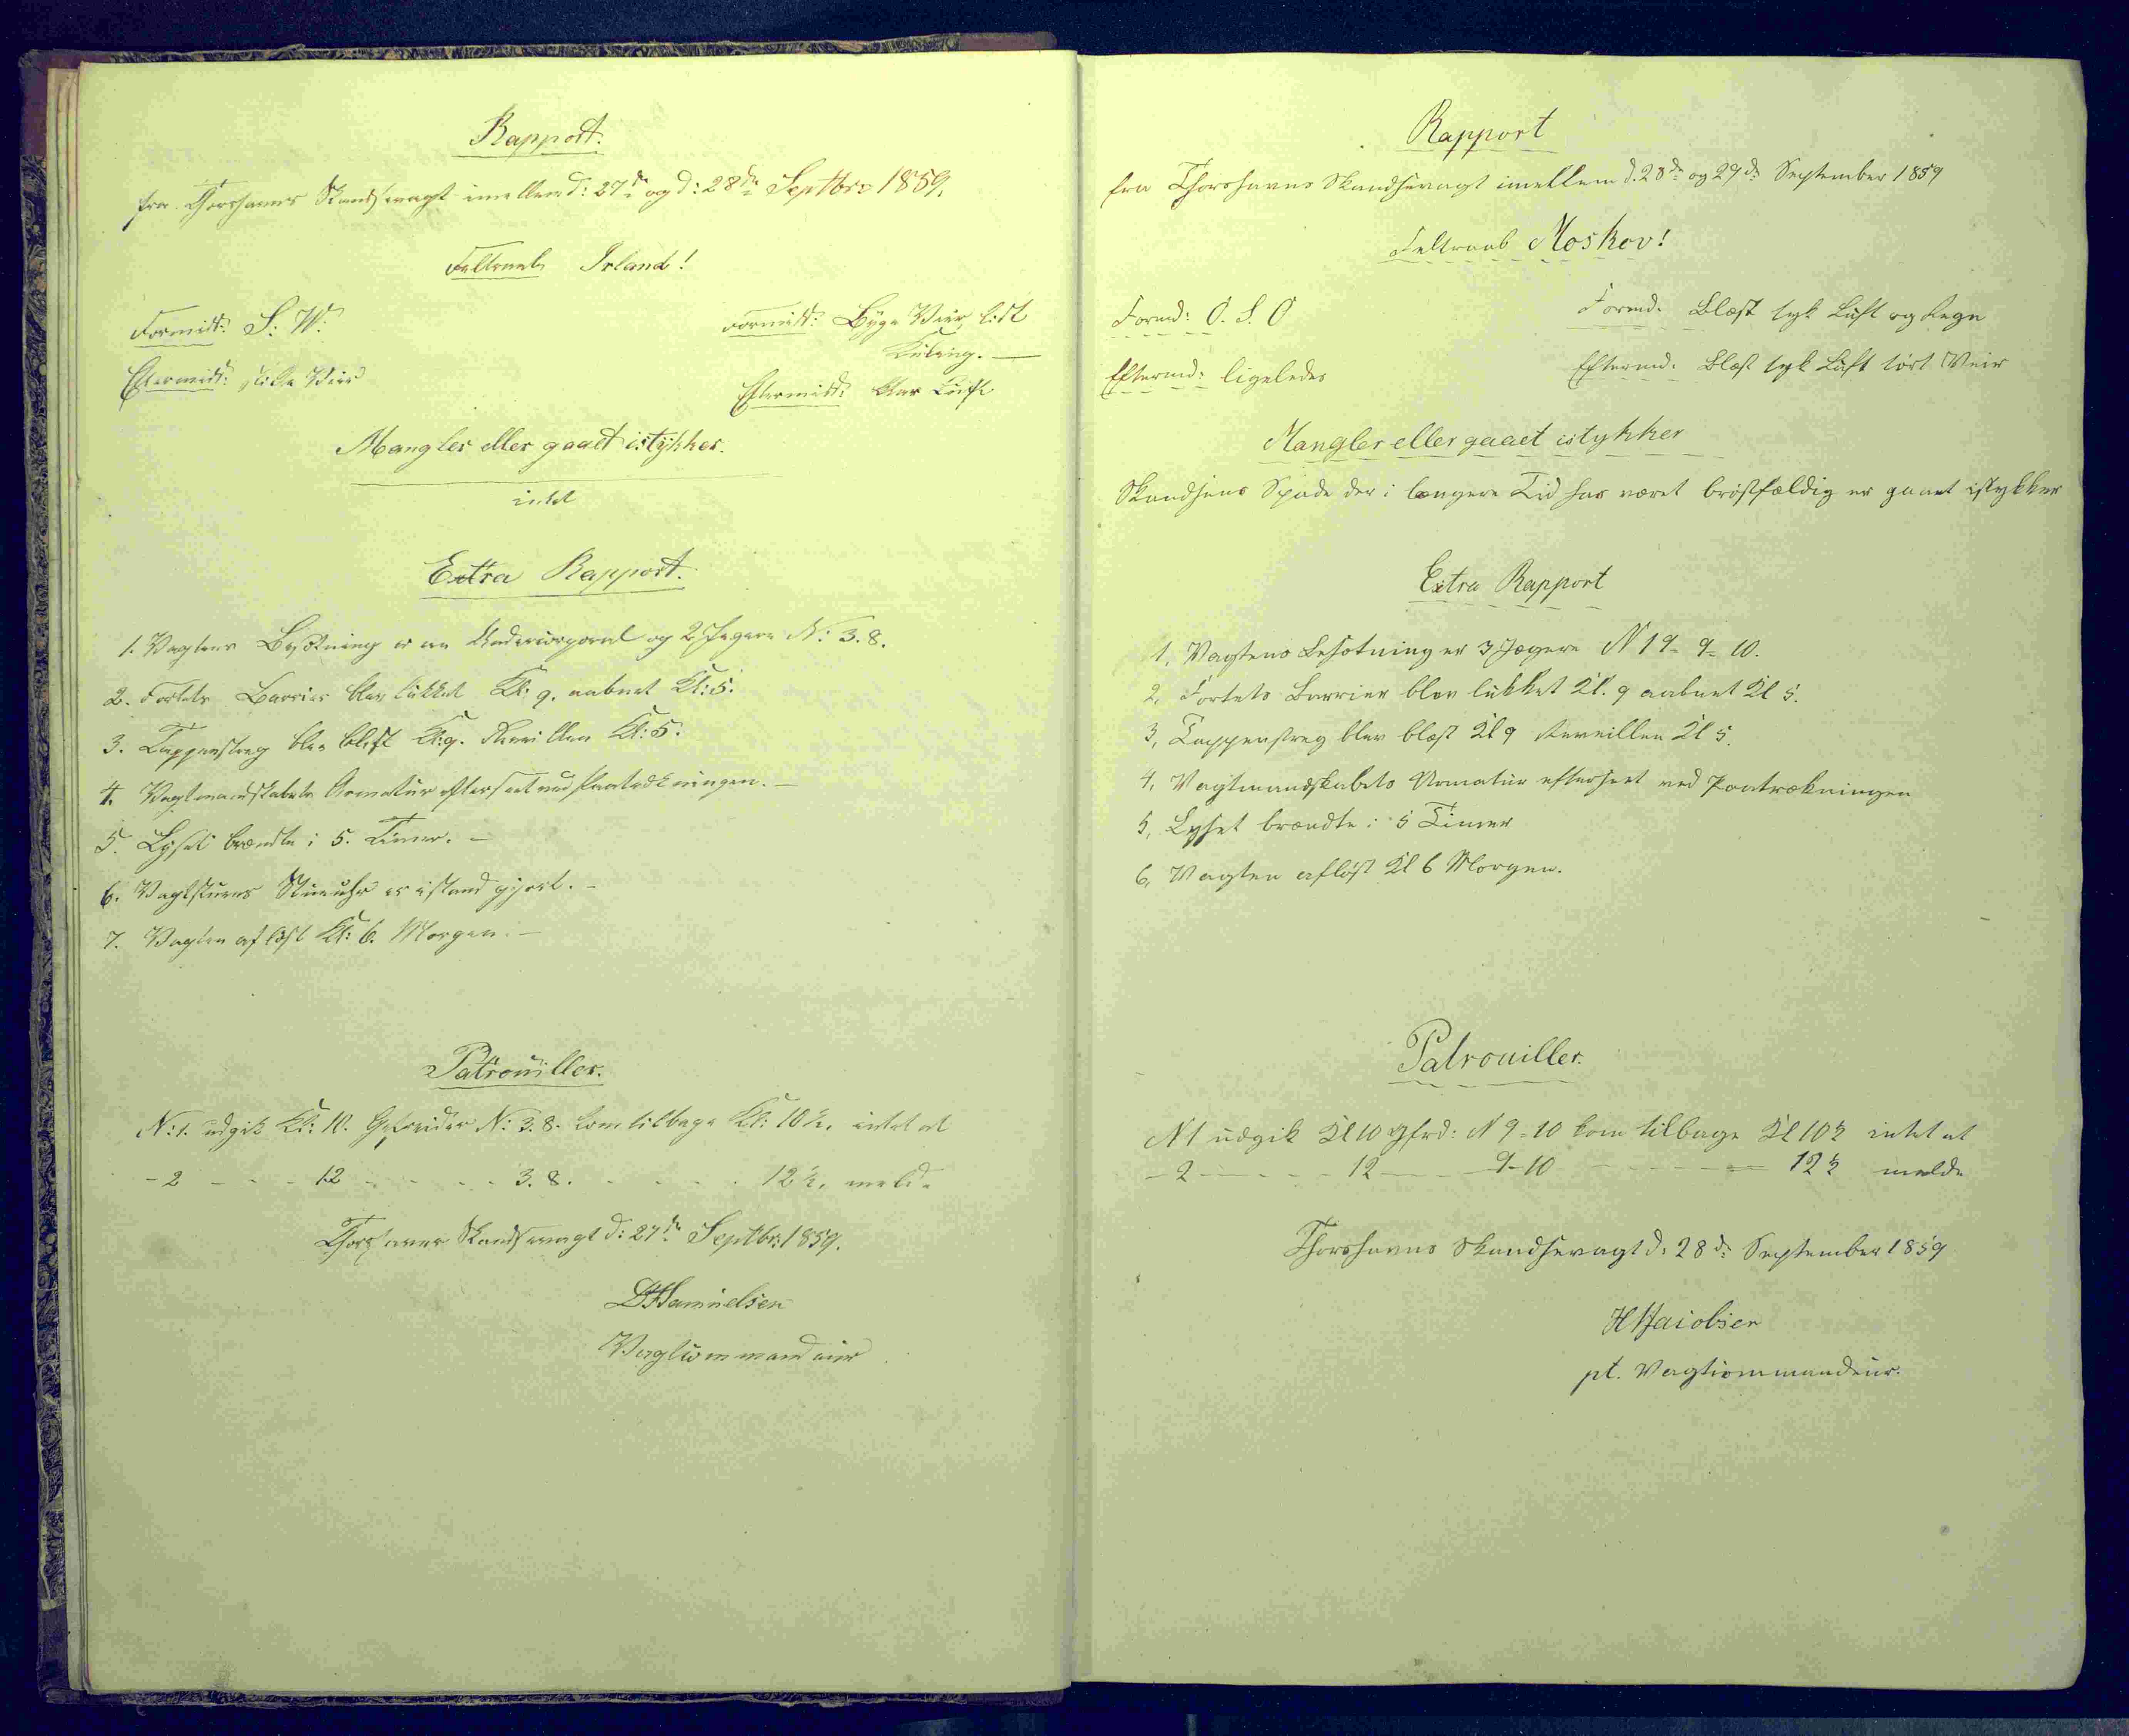 Rapport.
fra Thorshavns Skandsevagt imellem d: 27de og d: 28de Septbr: 1859.
Feltraab Irland!
Formidd: S: W:
Eftermidd: stille Veir
Formidd: Byge Veir, lidt
Kuling. —
Eftermidd: klar Luft
Mangler eller gaaet istykker.
intet
Extra Rapport.
1. Vagtens Besætning er en Undercorporal og 2 Jægere N: 3. 8.
2. Fortets Barrier blev lukket Kl: 9. aabnet Kl: 5.
3. Tappenstreg blev blæst Kl: 9. Reveillen Kl: 5.
4. Vagtmandskabets Armatur efterseet ved Paatrækningen. —
5. Lyset brændte i 5. Timer. —
6. Vagtstuens Stueuhr er istand gjort. —
7. Vagten afløst Kl: 6. Morgen. —
Patrouiller.
N: 1. udgik Kl: 10. Gefreider N: 3. 8. kom tilbage Kl: 10½, intet at
- 2 - - - 12 - - - - 3. 8. - - - - - 12½, melde
Thorshavns Skandsevagt d: 27de Septbr: 1859.
Samuelsen
Vagtcommandeur
Rapport
fra Thorshavns Skandsevagt imellem d. 28de og 29de September 1859
Feltraab Moskov!
Formd: O. S. O
Formd. Blæst tyk Luft og Regn
Eftermd: ligeledes
Eftermd. Blæst tyk Luft tørt Veir
Mangler eller gaaet istykker
Skandsens Spade der i længere Tid har været brøstfældig er gaaet istykker
Extra Rapport
1, Vagtens Besætning er 3 Jægere N 19- 9- 10.
2, Fortets Barrier blev lukket Kl. 9 aabnet Kl 5.
3, Tappenstreg blev blæst Kl 9 Reveillen Kl 5.
4, Vagtmandskabets Armatur efterseet ved Paatrækningen
5, Lyset brændte i 5 Timer
6, Vagten afløst Kl 6 Morgen.
Patrouiller.
N 1 udgik Kl 10 Gfrd: N 9-10 kom tilbage Kl 10½ intet at
- 2 - - - - 12 - - - 9-10 - - - - - 12½ melde
Thorshavns Skandsevagt d: 28de September 1859
H Jacobsen
pt. Vagtcommandeur.